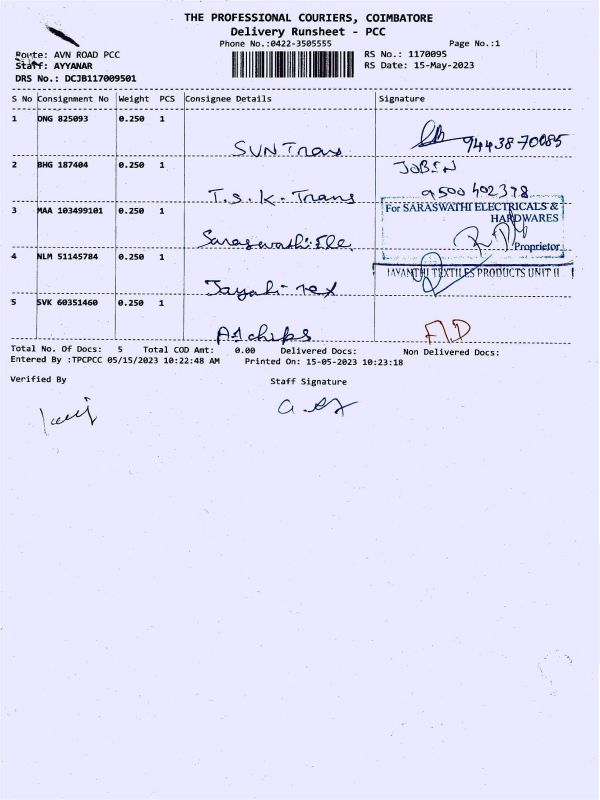 THE PROFESSIONAL COURIERS, COIMBATORE
Delivery Runsheet - PCC
Phone No.:0422-3505555 Page No.:1
Route: AVN ROAD PCC RS No.: 1170095
Staff: AYYANAR RS Date: 15-May-2023
DRS No.: DCJB117009501
S No Consignment No Weight PCS Consignee Details Signature
1 DNG 825093 0.250 1
SUN Trans 94438-70085
2 BHG 187404 0.250 1 JOBIN
T.S.K-Trans 9500402378
3 MAA 103499101 0.250 1 For SARASWATHI ELECTRICALS &
HARDWARES
Saraswathi Ele Proprietor
4 NLM 51145784 0.250 1 JAYANTHI TEXTILES PRODUCTS UNIT II
Jayahi-Tex
5 SVK 60351460 0.250 1
A1 chips
Total No. Of Docs: 5 Total COD Amt: 0.00 Delivered Docs: Non Delivered Docs:
Entered By :TPCPCC 05/15/2023 10:22:48 AM Printed On: 15-05-2023 10:23:18
Verified By Staff Signature